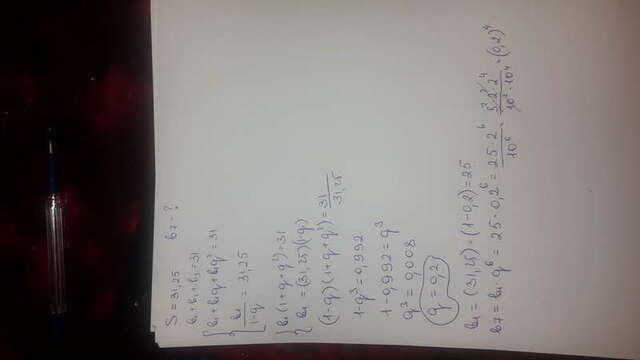 S = 31,25    b₇ = ?
b₁ + b₂ + b₃ = 31
{ b₁ + b₁q + b₁q² = 31
b₁/(1-q) = 31,25
{ b₁(1 + q + q²) = 31
b₁ = (31,25)(1-q)
(1-q)(1+q+q²) = 31/31,25
1-q³ = 0,992
1-0,992 = q³
q³ = 0,008
q = 0,2
b₁ = (31,25)·(1-0,2) = 25
b₇ = b₁·q⁶ = 25·0,2⁶ = 25·2⁶/10⁶ = 5²·2²·2⁴/10²·10⁴ = (0,2)⁴